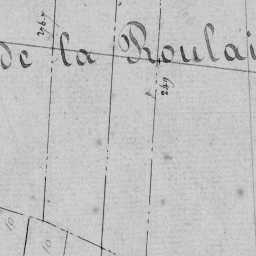 de la Roulai
249
10
10